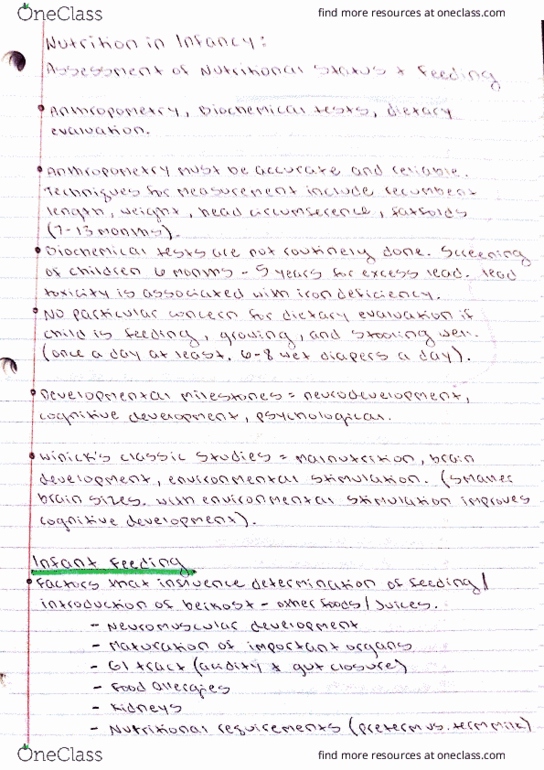 OneClass
find more resources at oneclass.com
Nutrition in Infancy:
Assessment of Nutritional Status + Feeding
• Anthropometry, Biochemical tests, dietary
evaluation.
• Anthropometry must be accurate and reliable.
Techniques for measurement include recumbent
length, weight, head circumference, fatfolds
(7-13 months).
• Biochemical tests are not routinely done. Screening
of children 6 months - 5 years for excess lead. lead
toxicity is associated with iron deficiency.
• No particular concern for dietary evaluation if
child is feeding, growing, and stooling well.
(once a day at least, 6-8 wet diapers a day).
• Developmental milestones = neurodevelopment,
cognitive development, psychological.
• Winick's classic studies = malnutrition, brain
development, environmental stimulation. (smaller
brain sizes. with environmental stimulation improves
cognitive development).
Infant Feeding
• Factors that influence determination of feeding/
introduction of beikost - other foods/juices.
- Neuromuscular development
- Maturation of important organs
- GI tract (acidity + gut closure)
- Food Allergies
- Kidneys
- Nutritional requirements (preterm vs. term milk)
OneClass
find more resources at oneclass.com